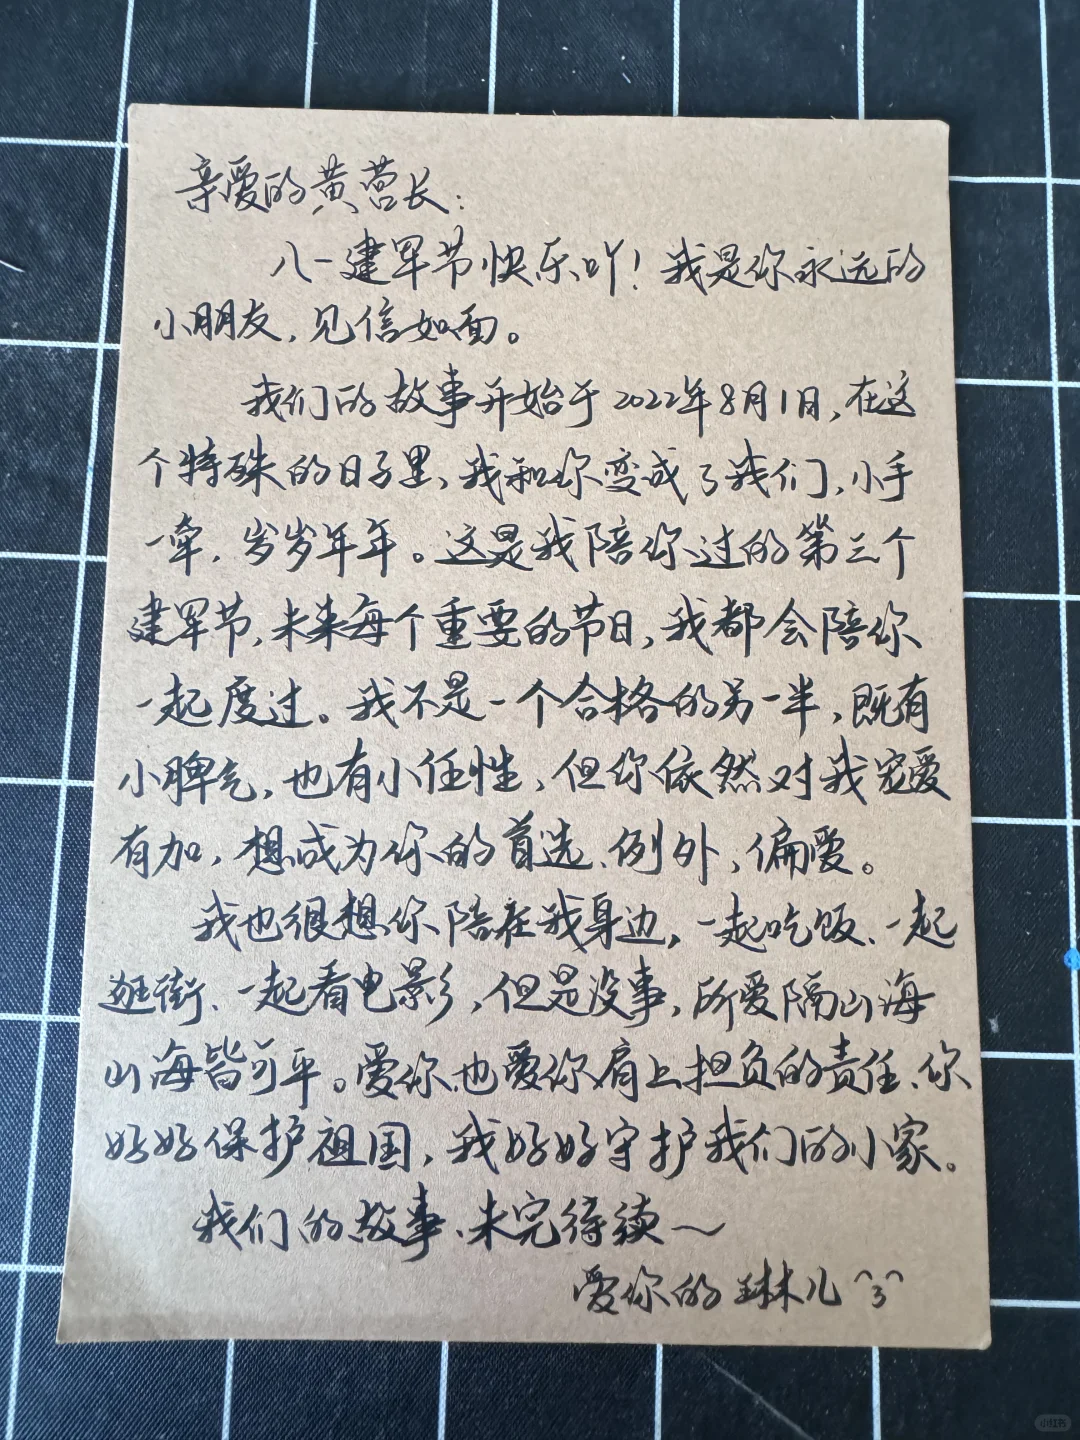 亲爱的黄营长：
八一建军节快乐吖！我是你永远的
小朋友，见信如面。
我们的故事开始于2022年8月1日，在这
个特殊的日子里，我和你变成了我们，小手
一牵，岁岁年年。这是我陪你过的第三个
建军节，未来每个重要的节日，我都会陪你
一起度过。我不是一个合格的另一半，既有
小脾气，也有小任性，但你依然对我宠爱
有加，想成为你的首选、例外，偏爱。
我也很想你陪在我身边，一起吃饭、一起
逛街、一起看电影，但是没事，所爱隔山海
山海皆可平。爱你也爱你肩上担负的责任、你
好好保护祖国，我好好守护我们的小家。
我们的故事、未完待续～
爱你的琳儿^3^
小红书